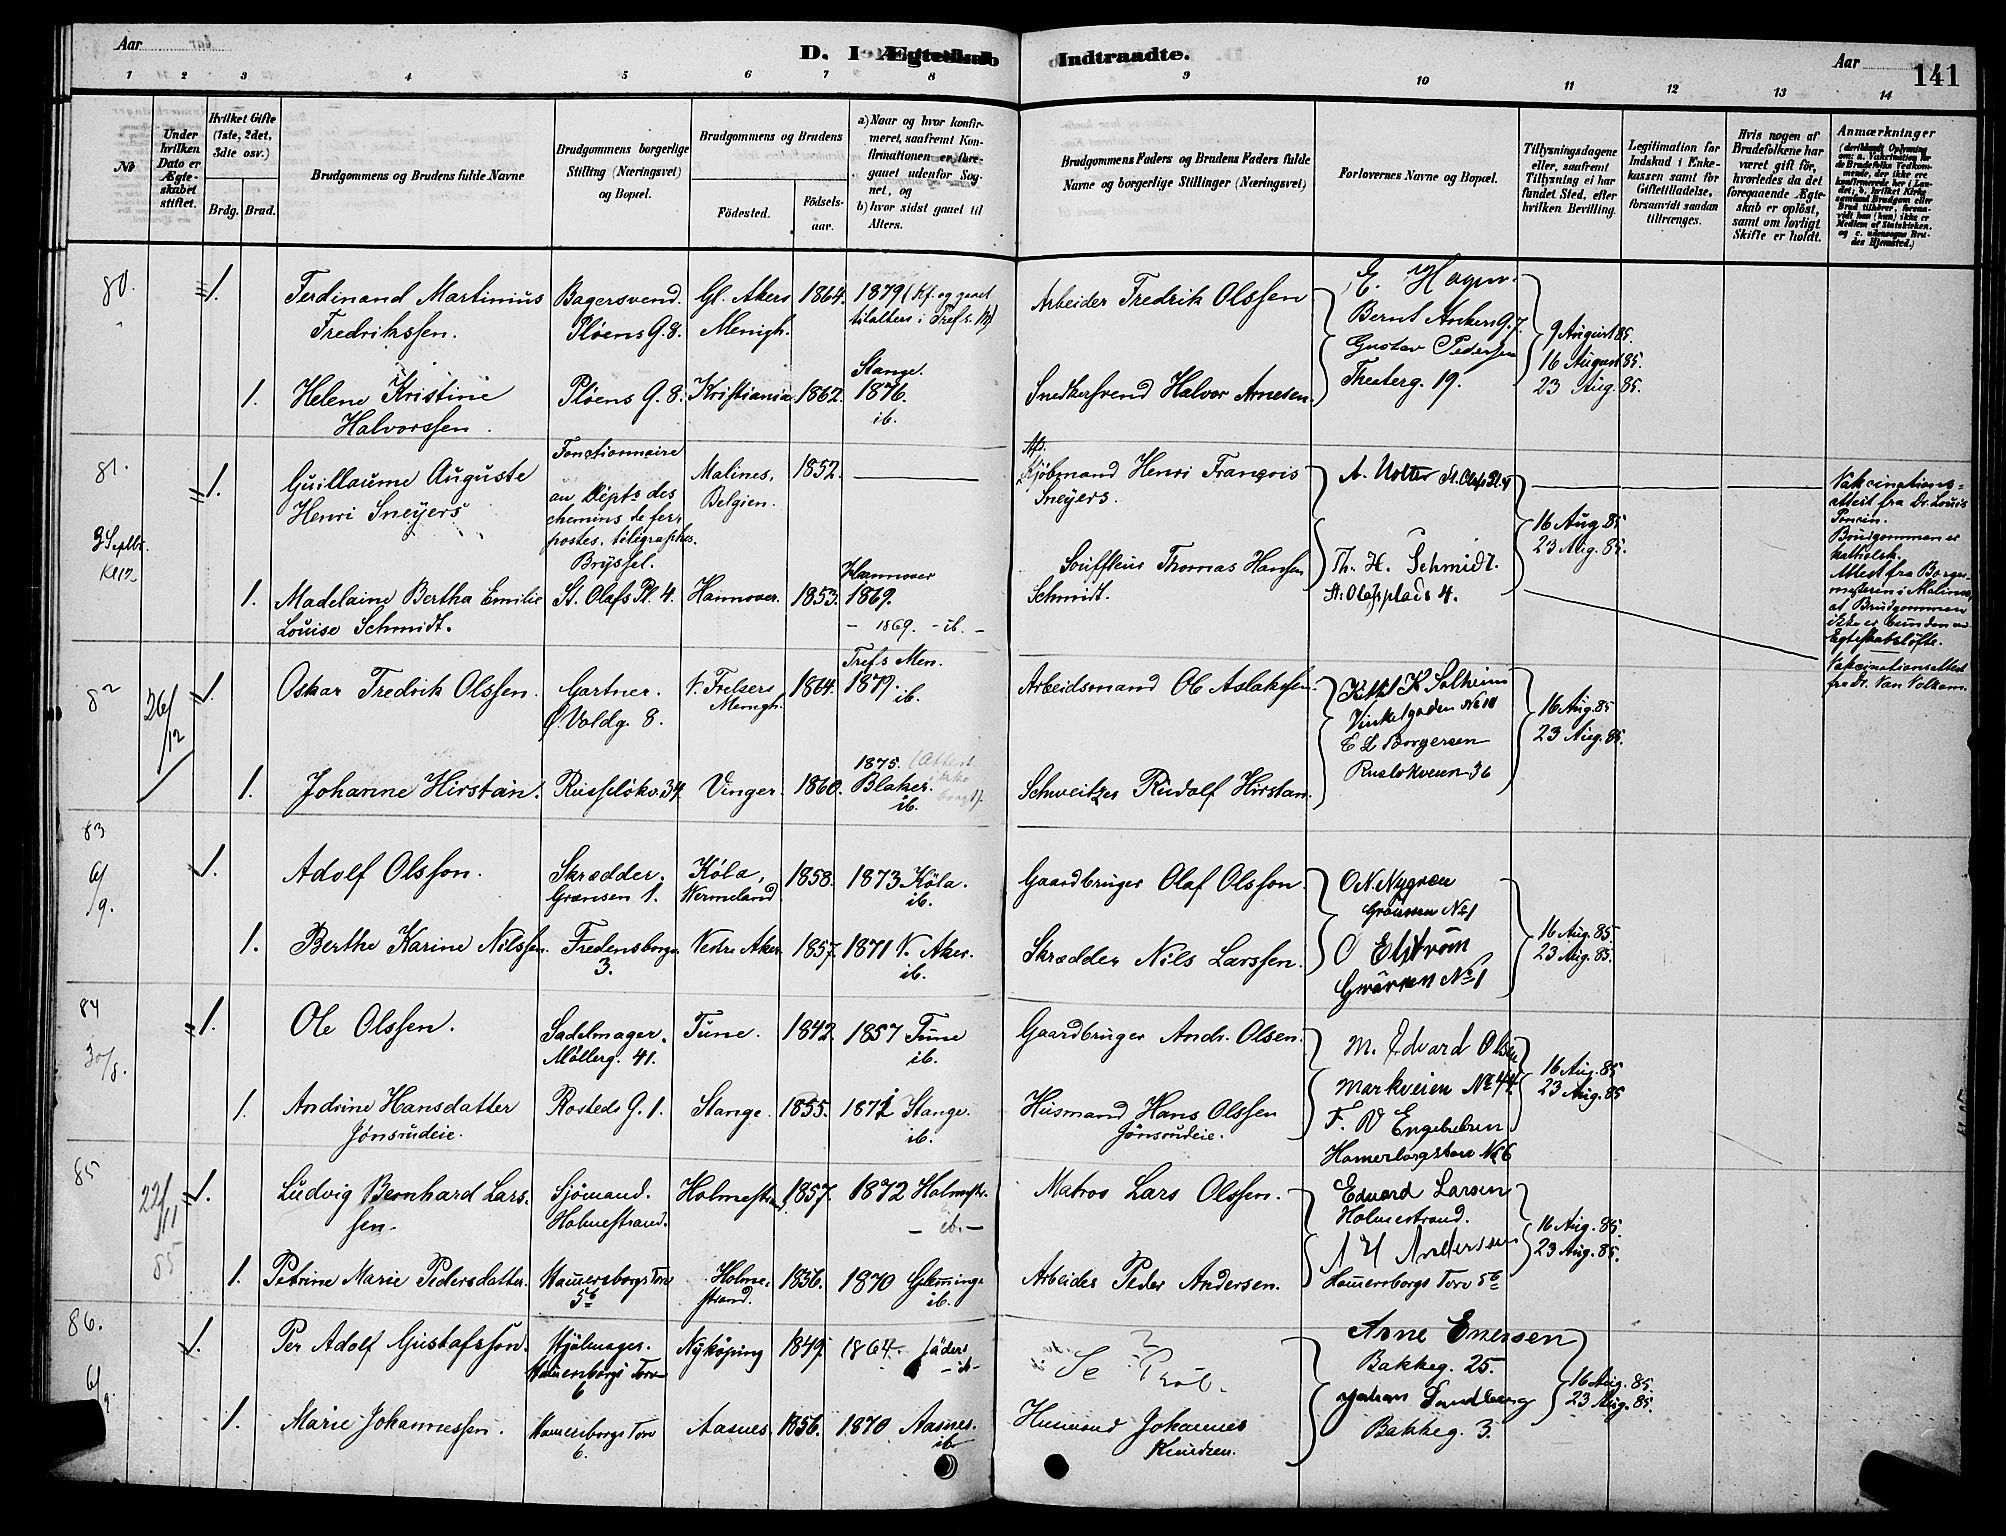 Aar
D. I Ægteskab Indtraadte.
Aar
141
1 2 3 4 5 6 7 8 9 10 11 12 13 14
No
Under hvilken Dato er Ægteskabet stiftet.
Hvilket Gifte (1ste, 2det, 3die osv.)
Brdg. Brud.
Brudgommens og Brudens fulde Navne
Brudgommens borgerlige Stilling (Næringsvei) og Bopæl.
Brudgommens og Brudens
Födested.
Födsels-aar.
a) Naar og hvor konfirmeret, saafremt Konfirmationen er foregaaet udenfor Sognet, og
b) hvor sidst gaaet til Alters.
Brudgommens Faders og Brudens Faders fulde Navne og borgerlige Stillinger (Næringsvei)
Forlovernes Navne og Bopæl.
Tillysningsdagene eller, saafremt Tillysning ei har fundet Sted, efter hvilken Bevilling.
Legitimation for Indskud i Enkekassen samt for Giftetilladelse, forsaavidt saadan tiltrænges.
Hvis nogen af Brudefolkene har været gift för, hvorledes da det foregaaende Ægteskab er oplöst, samt om lovligt Skifte er holdt.
Anmærkninger
80.
1. Ferdinand Martinius Fredrikssen.
Bagersvend. Pløens G. 8.
Gl. Akers Menigh.
1864.
1879 (Kf. og gaaet tilalters i Trefs. M)
Arbeider Fredrik Olssen
E. Hagen.
Bernt Ankers G. 7.
Gustav Pedersen
Theaterg. 19.
9 August 85.
16 August 85.
23 Aug. 85.
1. Helene Kristine Halvorssen.
Pløens G. 8.
Kristiania
1862.
Stange. 1876. ib.
Snedkersvend Halvor Arnesen.
81.
3 Septbr. Kl 12
1. Guillaume Auguste Henri Sneyers
Fonctionnaire au Dépts des chemins de fer, postes, télégraphes. Bryssel.
Malines, Belgien.
1852.
Kjøbmand Henri François Sneyers.
St. Olafs Pl. 4
16 Aug. 85
23 Aug. 85.
Vakcinationsattest fra Dr. Louis
Brudgommen er katholsk.
Attest fra Borgemesteren i Malines, at Brudgommen ikke er bunden ved Egteskabsløfte.
Vakcinationsattest fra Dr. Van Volkom.
1. Madelaine Bertha Emilie Louise Schmidt.
St. Olafs Pl. 4.
Hannover.
1853.
Hannover 1869.
– 1869. – ib. –
Souffleur Thomas Hansen Schmidt.
Th. H. Schmidt.
St. Olafsplads 4.
82
26/12
1. Oskar Fredrik Olssen.
Gartner. Ø. Voldg. 8.
V. Frelsers Menigh.
1864.
Trefs Men. 1879. ib.
Arbeidsmand Ole Aslaksen.
Kittel K Solheim
Vinkelgaden No 10
E L Borgersen
Rusløkveien 36
16 Aug. 85
23 Aug. 85.
1. Johanne Hirstan.
Russeløkv. 34.
Vinger.
1860.
1875. Blaker. ib.
Schweitzer Rudolf Hirstan.
83
6/9.
1. Adolf Olsson.
Skrædder. Grænsen 1.
Köla, Wermeland
1858.
1873 Köla. ib.
Gaardbruger Olaf Olsson.
O N Nygren
Grænsen No 1
O Elström
No 1
16 Aug. 85.
23 Aug. 85.
1. Berthe Karine Nilssen.
Fredensborgv. 3.
Vestre Aker.
1857.
1871 V. Aker. ib.
Skrædder Nils Larssen.
84
30/8.
1. Ole Olssen.
Sadelmager. Møllerg. 41.
Tune.
1842.
1857 Tune ib.
Gaardbruger Andr. Olsen.
M. Edvard Olsen
Markveien No 44.
F. W Engebretsen
No 6
16 Aug. 85
23 Aug. 85
1. Andrine Hansdatter Jønsrudeie.
Rosteds G. 1.
Stange.
1855.
1871 Stange. ib.
Husmand Hans Olssen Jønsrudeie.
85
22/11 85
1. Ludvig Bernhard Larssen.
Sjömand. Holmestrand.
Holmestr.
1857.
1872 Holmestr. – ib. –
Matros Lars Olssen.
Edvard Larsen
Holmestrand.
A H Anderssen
Hamersborgs Torv 5b
16 Aug. 85.
23 Aug. 85.
1. Petrine Marie Pedersdatter.
Hamersborgs Torv 5b
Holmestrand.
1856.
1870 Glemminge ib.
Arbeider Peder Andersen.
86.
6/9.
1. Per Adolf Gustafsson.
Hjulmager. Hamersborgs Torv 6
Nyköping
1849.
1864. Jäders – ib –
Arne Enersen
Bakkeg. 25.
Johan Sandberg
Bakkeg. 3.
16 Aug. 85.
23 Aug. 85.
1. Marie Johannessen.
Hamersborgs Torv 6.
Aasnes
1856.
1870 Aasnes. ib
Husmand Johannes Knudsen.